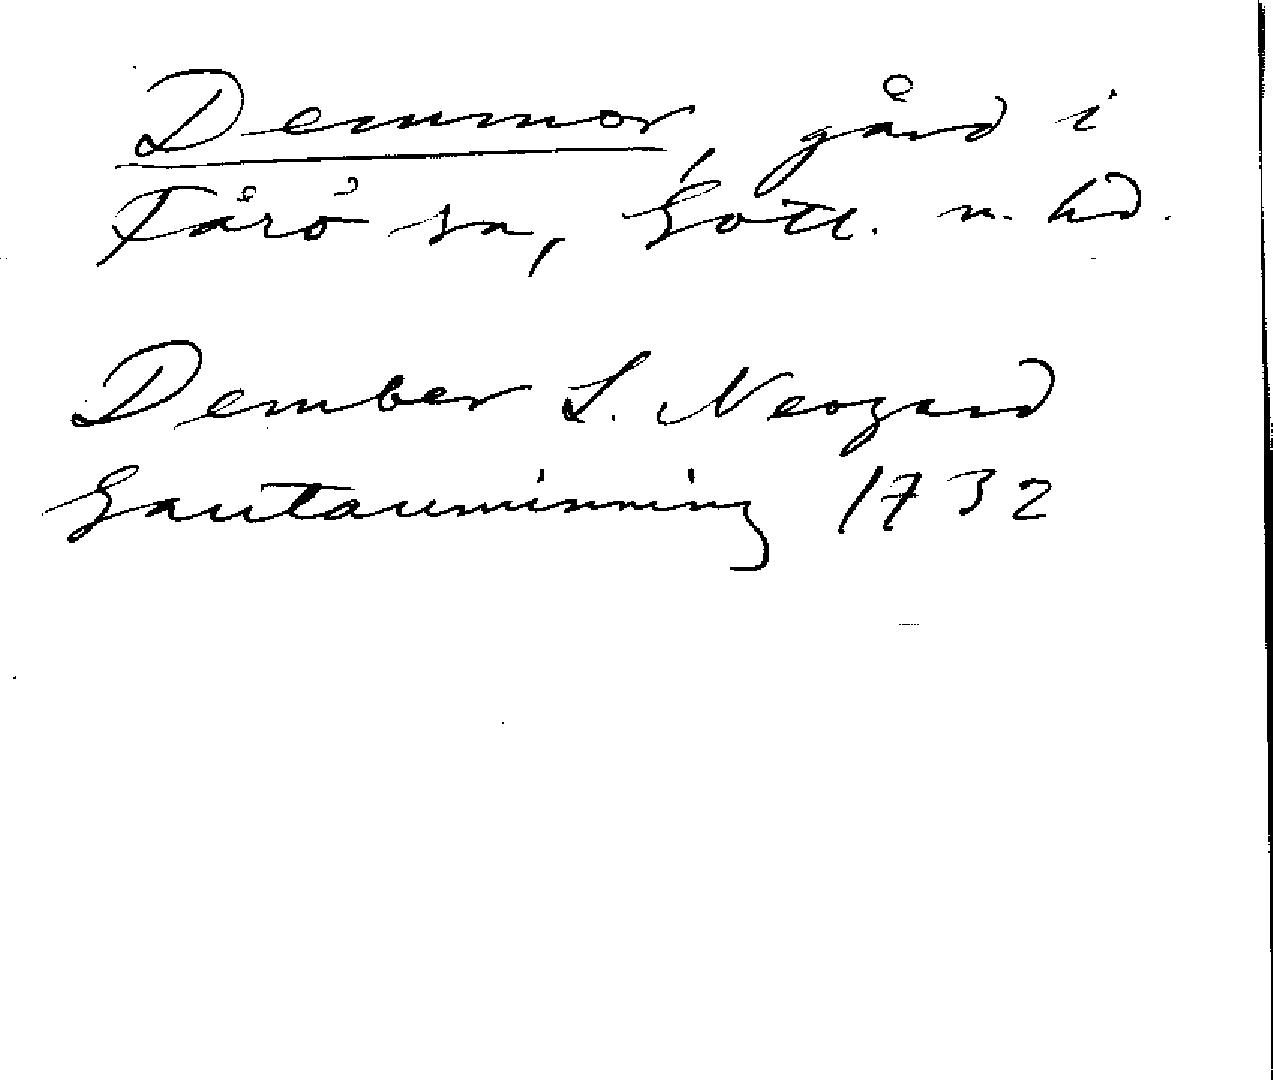 Demmor, gård i
Fårö sn, Gotl. n. hd.
Dember L. Neogard
Gautauminning 1732